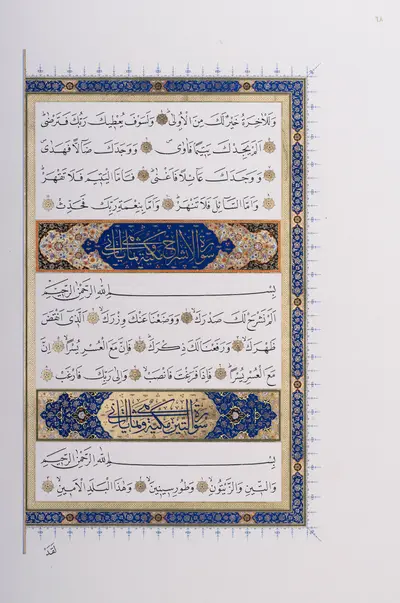 ٦٨
وَلَلْاٰخِرَةُ خَيْرٌ لَكَ مِنَ الْاُولٰى وَلَسَوْفَ يُعْطِيكَ رَبُّكَ فَتَرْضٰى
اَلَمْ يَجِدْكَ يَتِيمًا فَاٰوٰى وَوَجَدَكَ ضَالًّا فَهَدٰى
وَوَجَدَكَ عَائِلًا فَاَغْنٰى فَاَمَّا الْيَتِيمَ فَلَا تَقْهَرْ
وَاَمَّا السَّائِلَ فَلَا تَنْهَرْ وَاَمَّا بِنِعْمَةِ رَبِّكَ فَحَدِّثْ
سورة الانشراح مكية
بِسْمِ اللّٰهِ الرَّحْمٰنِ الرَّحِيمِ
اَلَمْ نَشْرَحْ لَكَ صَدْرَكَ وَوَضَعْنَا عَنْكَ وِزْرَكَ اَلَّذِى اَنْقَضَ
ظَهْرَكَ وَرَفَعْنَا لَكَ ذِكْرَكَ فَاِنَّ مَعَ الْعُسْرِ يُسْرًا اِنَّ
مَعَ الْعُسْرِ يُسْرًا فَاِذَا فَرَغْتَ فَانْصَبْ وَاِلٰى رَبِّكَ فَارْغَبْ
سورة التين مكية
بِسْمِ اللّٰهِ الرَّحْمٰنِ الرَّحِيمِ
وَالتِّينِ وَالزَّيْتُونِ وَطُورِ سِينِينَ وَهٰذَا الْبَلَدِ الْاَمِينِ
لَقَدْ